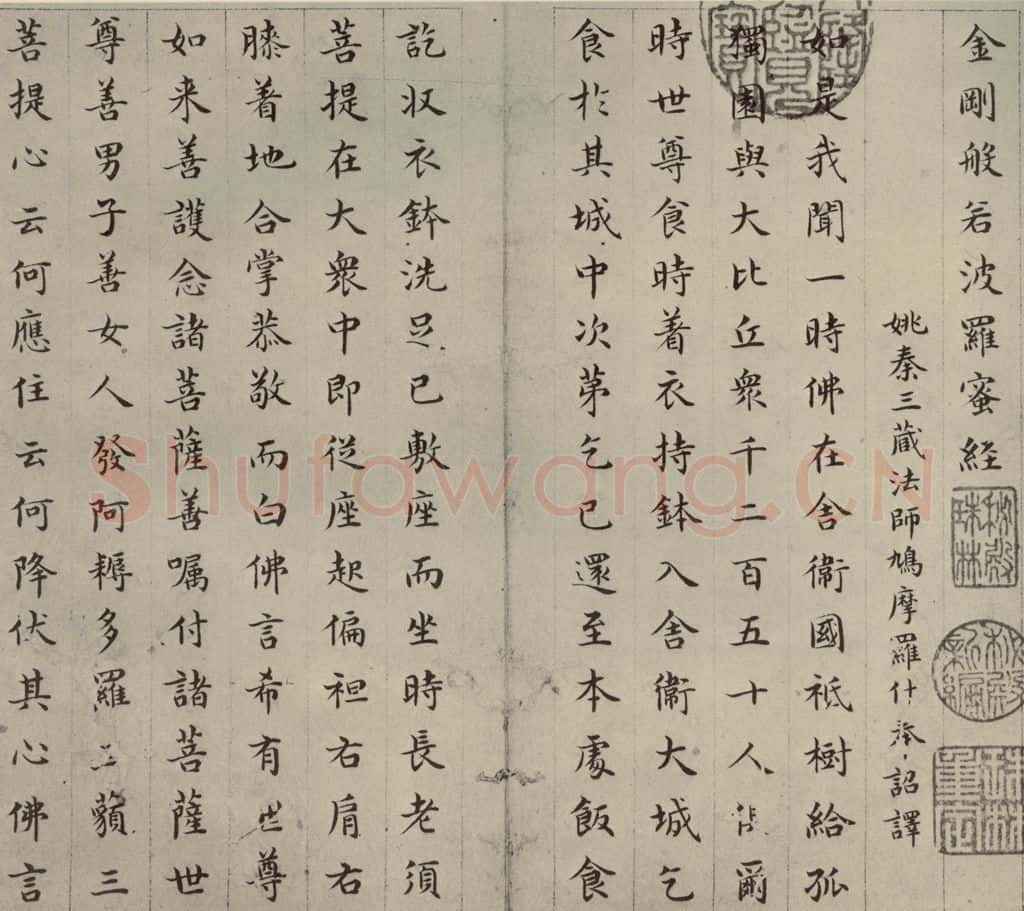 金剛般若波羅蜜經
姚秦三藏法師鳩摩羅什奉詔譯
如是我聞一時佛在舍衛國祇樹給孤
獨園與大比丘眾千二百五十人俱爾
時世尊食時着衣持鉢入舍衛大城乞
食於其城中次苐乞已還至本處飯食
訖收衣鉢洗足已敷座而坐時長老須
菩提在大眾中即從座起偏袒右肩右
膝着地合掌恭敬而白佛言希有世尊
如来善護念諸菩薩善囑付諸菩薩世
尊善男子善女人發阿耨多羅三藐三
菩提心云何應住云何降伏其心佛言
秘殿珠林
珠林重定
Shufawang.CN